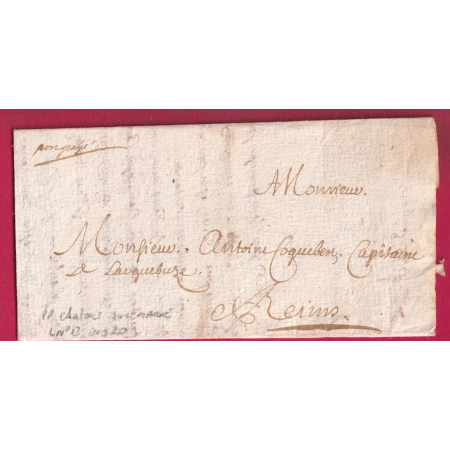 port payé
A Monsieur
Monsieur Antoine Coquebert Capitaine
de Larquebuze
A Reims
PP Chalons sur marne